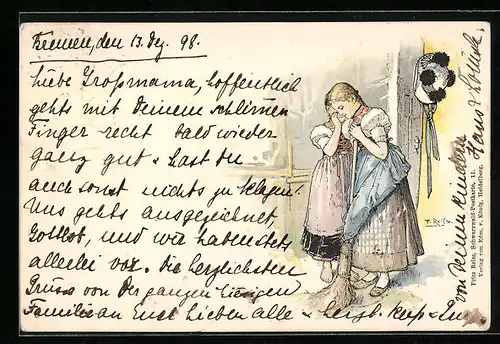 Bremen, den 13. Dez. 98.
Liebe Großmama, hoffentlich
gehts mit Deinem schlimmen
Finger recht bald wieder
ganz gut & hast Du
auch sonst nichts zu klagen!
Uns gehts ausgezeichnet
Gottlob, und wir haben stets
allerlei vor. Die herzlichsten
Grüsse von der ganzen hiesigen
Familie an Euch Lieben alle & herzl.
von Deinen Enkeln
Hans & Louise.
F. Reiss
Fritz Reiss, Schwarzwald-Postkarte, 11.
Verlag von Edm. v. König, Heidelberg.